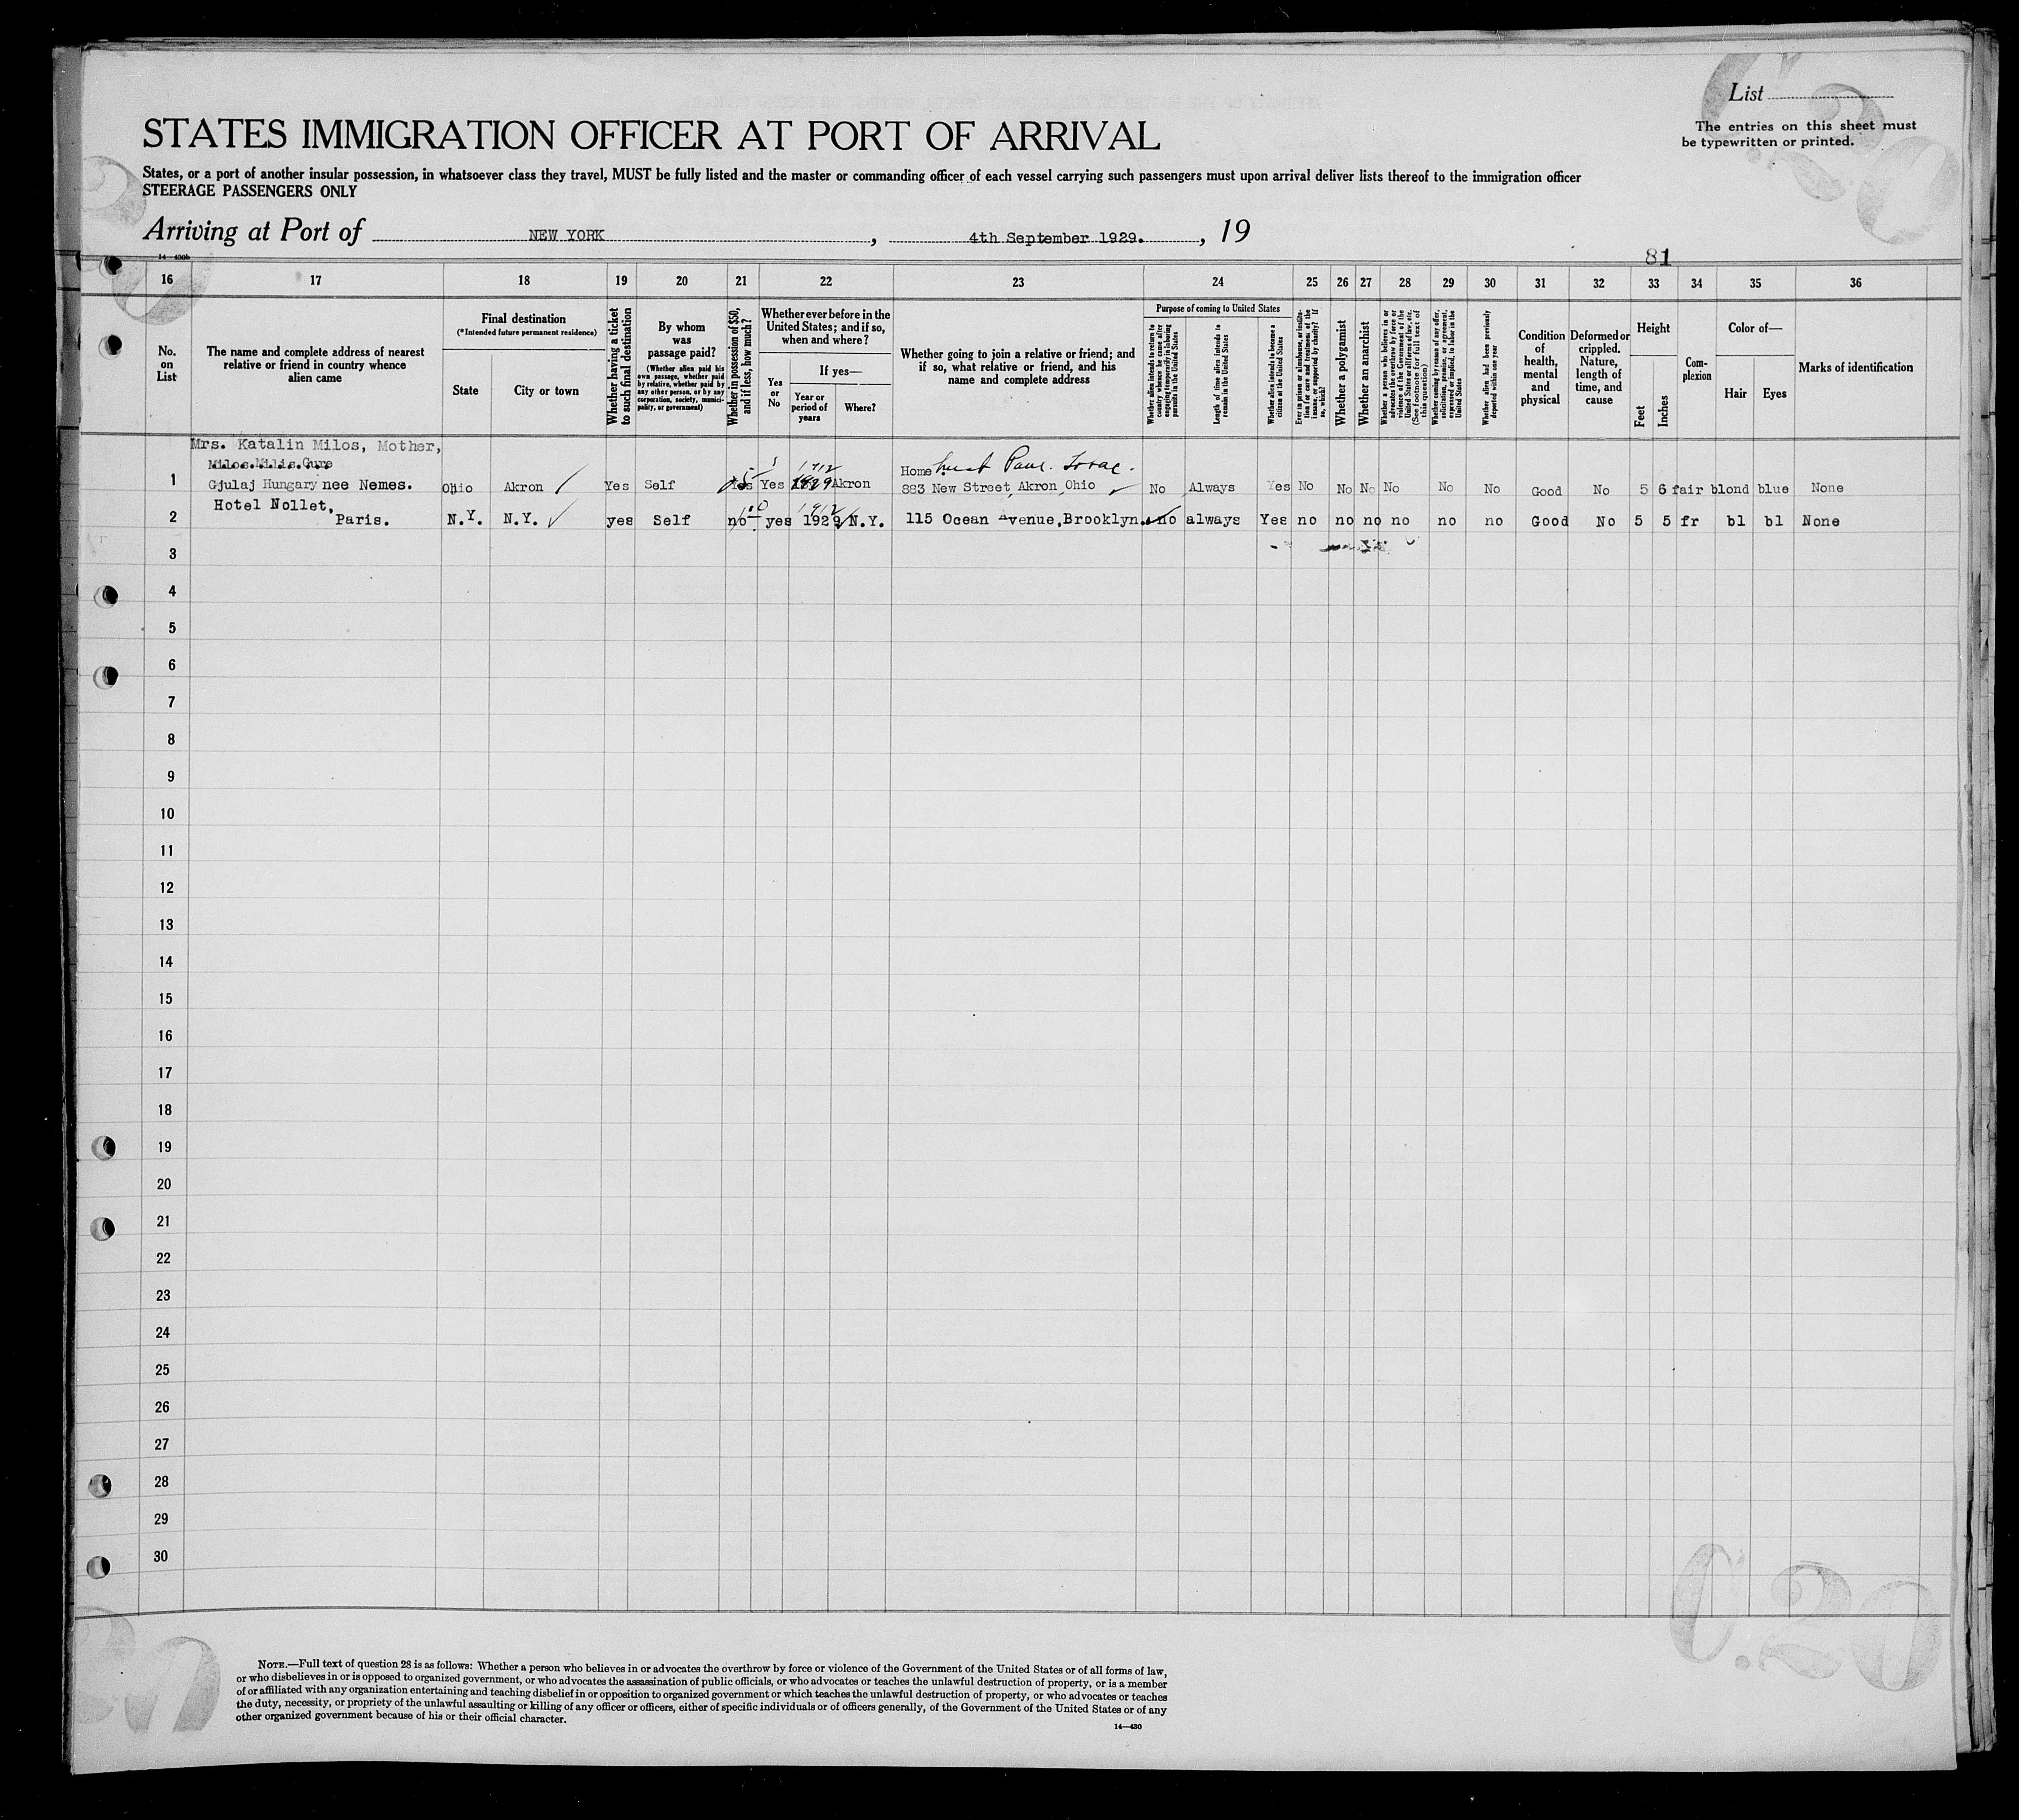 List
The entries on this sheet must
be typewritten or printed.
STATES IMMIGRATION OFFICER AT PORT OF ARRIVAL
States, or a port of another insular possession, in whatsoever class they travel, MUST be fully listed and the master or commanding officer of each vessel carrying such passengers must upon arrival deliver lists thereof to the immigration officer
STEERAGE PASSENGERS ONLY
Arriving at Port of NEW YORK, 4th September 1929., 19
14—430b
81
16 17 18 19 20 21 22 23 24 25 26 27 28 29 30 31 32 33 34 35 36
No.
on
List
The name and complete address of nearest
relative or friend in country whence
alien came
Final destination
(*Intended future permanent residence)
State
City or town
Whether having a ticket
to such final destination
By whom
was
passage paid?
(Whether alien paid his
own passage, whether paid
by relative, whether paid by
any other person, or by any
corporation, society, munici-
pality, or government)
Whether in possession of $50,
and if less, how much?
Whether ever before in the
United States; and if so,
when and where?
Yes
or
No
If yes—
Year or
period of
years
Where?
Whether going to join a relative or friend; and
if so, what relative or friend, and his
name and complete address
Purpose of coming to United States
Whether alien intends to return to
country whence he came after
engaging temporarily in laboring
pursuits in the United States
Length of time alien intends to
remain in the United States
Whether alien intends to become a
citizen of the United States
Ever in prison or almshouse, or institu-
tion for care and treatment of the
insane, or supported by charity? If
so, which?
Whether a polygamist
Whether an anarchist
Whether a person who believes in or
advocates the overthrow by force or
violence of the Government of the
United States or all forms of law, etc.
(See footnote for full text of
this question)
Whether coming by reason of any offer,
solicitation, promise, or agreement,
expressed or implied, to labor in the
United States
Whether alien had been previously
deported within one year
Condition
of
health,
mental
and
physical
Deformed or
crippled.
Nature,
length of
time, and
cause
Height
Feet
Inches
Com-
plexion
Color of—
Hair
Eyes
Marks of identification
Mrs. Katalin Milos, Mother,
1 Gjulaj Hungary nee Nemes. Ohio Akron Yes Self Yes Yes 1929 Akron Home
1912
883 New Street, Akron, Ohio No Always Yes No No No No No No Good No 5 6 fair blond blue None
Hotel Nollet,
2 Paris. N.Y. N.Y. yes Self no yes 1929 N.Y. 115 Ocean Avenue, Brooklyn. no always Yes no no no no no no Good No 5 5 fr bl bl None
1912
3
4
5
6
7
8
9
10
11
12
13
14
15
16
17
18
19
20
21
22
23
24
25
26
27
28
29
30
NOTE.—Full text of question 28 is as follows: Whether a person who believes in or advocates the overthrow by force or violence of the Government of the United States or of all forms of law,
or who disbelieves in or is opposed to organized government, or who advocates the assassination of public officials, or who advocates or teaches the unlawful destruction of property, or is a member
of or affiliated with any organization entertaining and teaching disbelief in or opposition to organized government or which teaches the unlawful destruction of property, or who advocates or teaches
the duty, necessity, or propriety of the unlawful assaulting or killing of any officer or officers, either of specific individuals or of officers generally, of the Government of the United States or of any
other organized government because of his or their official character.
14—430